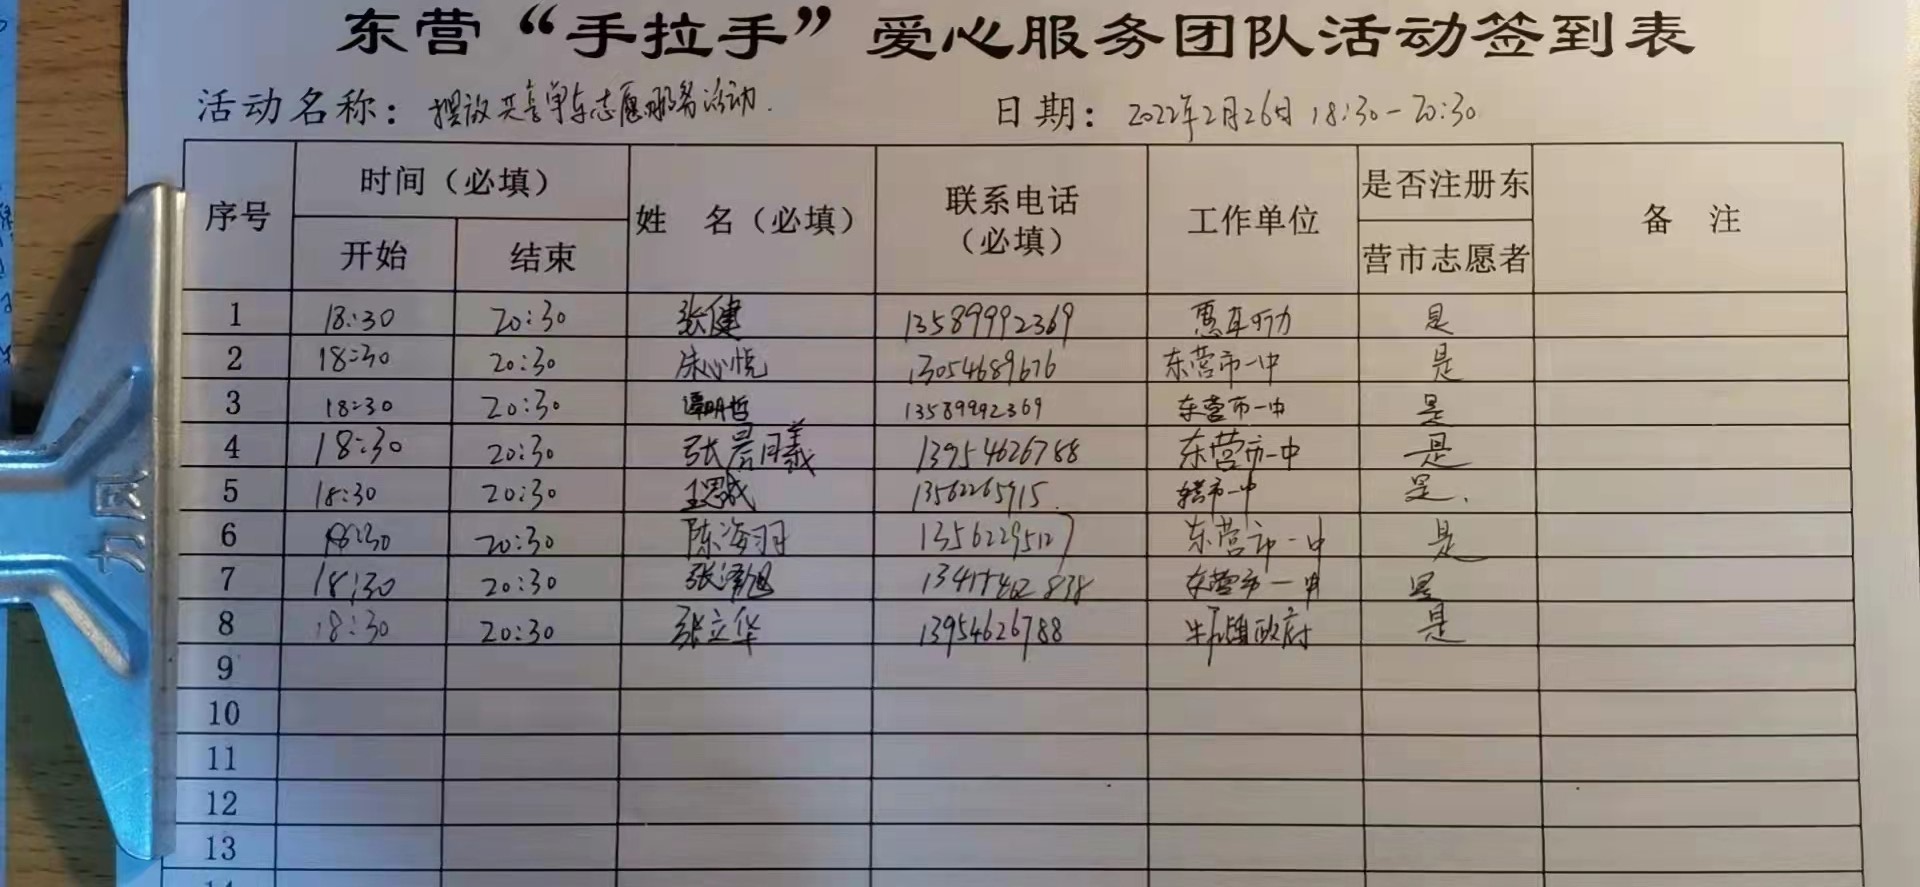 东营“手拉手”爱心服务团队活动签到表
活动名称：摆放共享单车志愿服务活动. 日期：2022年2月26日 18:30-20:30
序号 时间（必填） 开始 结束 姓 名（必填） 联系电话（必填） 工作单位 是否注册东营市志愿者 备 注
1 18:30 20:30 张健 13589992369 惠耳听力 是
2 18:30 20:30 朱心悦 13054689676 东营市一中 是
3 18:30 20:30 明哲 13589992369 东营市一中 是
4 18:30 20:30 张晨曦 13954626788 东营市一中 是
5 18:30 20:30 王思成 13562265915. 东营市一中 是.
6 18:30 20:30 陈海羽 13562295127 东营市一中 是
7 18:30 20:30 张泽旭 东营市一中 是
8 18:30 20:30 张立华 13954626788 政府 是
9
10
11
12
13
力风